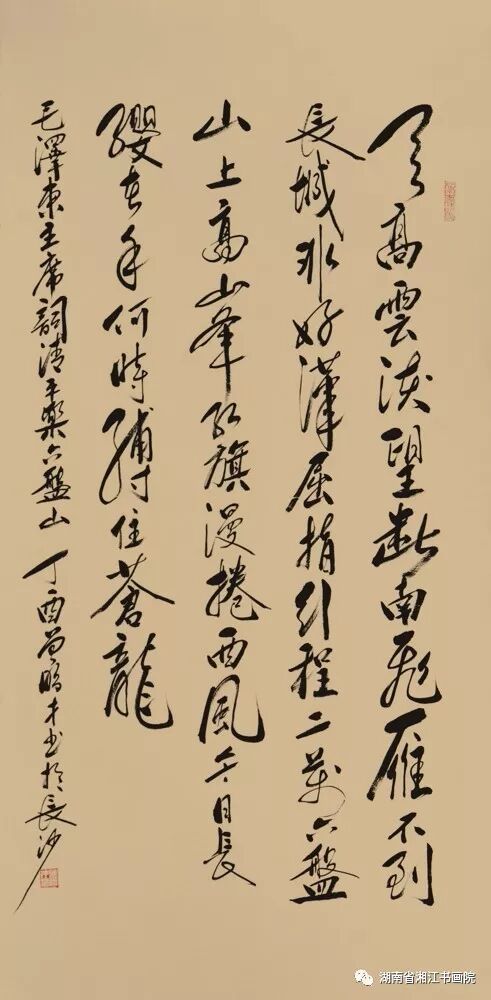 天高雲淡望斷南飛雁不到
長城非好漢屈指行程二萬六盤
山上高山峯紅旗漫捲西風今日長
纓在手何時縛住蒼龍
毛澤東主席詞清平樂六盤山 丁酉 才书於長沙
湖南省湘江书画院